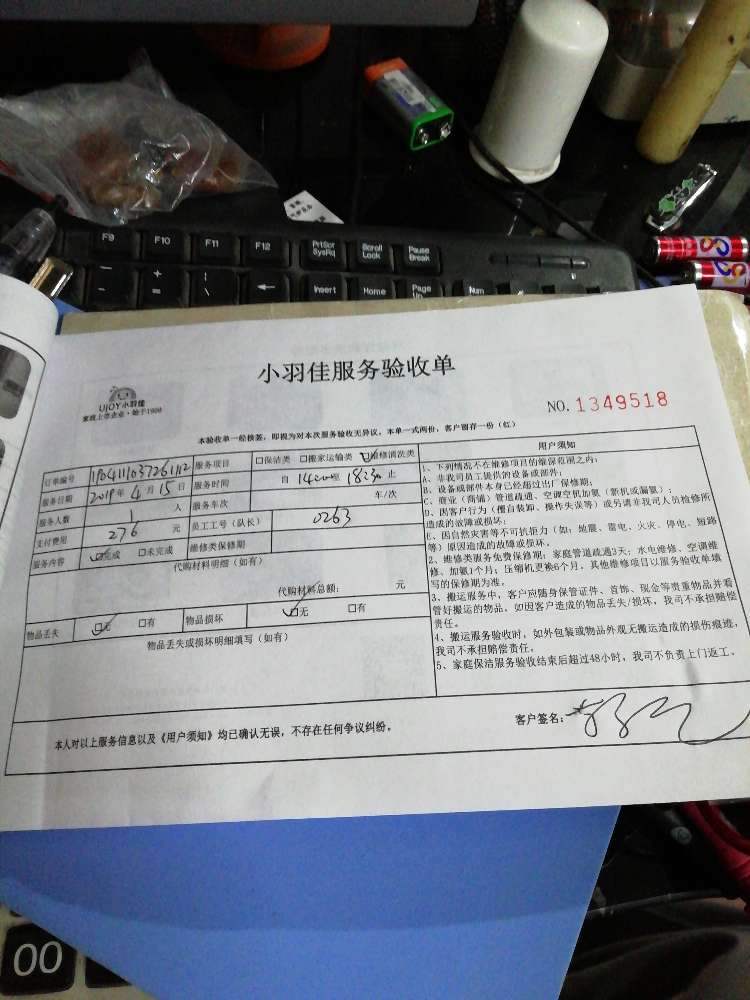 F9 F10 F11 F12 PrtScr SysRq Scroll Lock Pause Break
Insert Home Page Up Num
小羽佳服务验收单
UJOY小羽佳
家政上市企业·始于1998
NO. 1349518
本验收单一经横签，即视为对本次服务验收无异议，本单一式两份，客户留存一份（红）
订单编号
服务项目 □保洁类 □搬家运输类 ☑维修清洗类
服务日期 2019年4月15日 服务时间 自 14:00 至 18:30 止
服务人数 1 人 服务车次 车/次
支付费用 276 元 员工工号（队长） 0263
服务内容 ☑完成 □未完成 维修类保修期
代购材料明细（如有）
代购材料总额： 元
物品丢失 ☑无 □有 物品损坏 ☑无 □有
物品丢失或损坏明细填写（如有）
用户须知
1、下列情况不在维修项目的维保范围之内：
A、非我司员工提供的设备或部件。
B、设备或部件本身已经超过出厂保修期；
C、商业（商铺）管道疏通、空调空机加氟（新机或漏氟）；
D、因客户行为（擅自装卸、操作失误等）或另请非我司人员检修所
造成的故障或损坏；
E、因自然灾害等不可抗拒力（如：地震、雷电、火灾、停电、短路
等）原因造成的故障或损坏。
2、维修类服务免费保修期：家庭管道疏通3天；水电维修、空调维
修、加氟1个月；压缩机更换6个月，其他维修项目以服务验收单填
写的保修期为准。
3、搬运服务中，客户应随身保管证件、首饰、现金等贵重物品并看
管好搬运的物品，如因客户造成的物品丢失/损坏，我司不承担赔偿
责任。
4、搬运服务验收时，如外包装或物品外观无搬运造成的损伤痕迹，
我司不承担赔偿责任。
5、家庭保洁服务验收结束后超过48小时，我司不负责上门返工。
本人对以上服务信息以及《用户须知》均已确认无误，不存在任何争议纠纷。
客户签名：
00